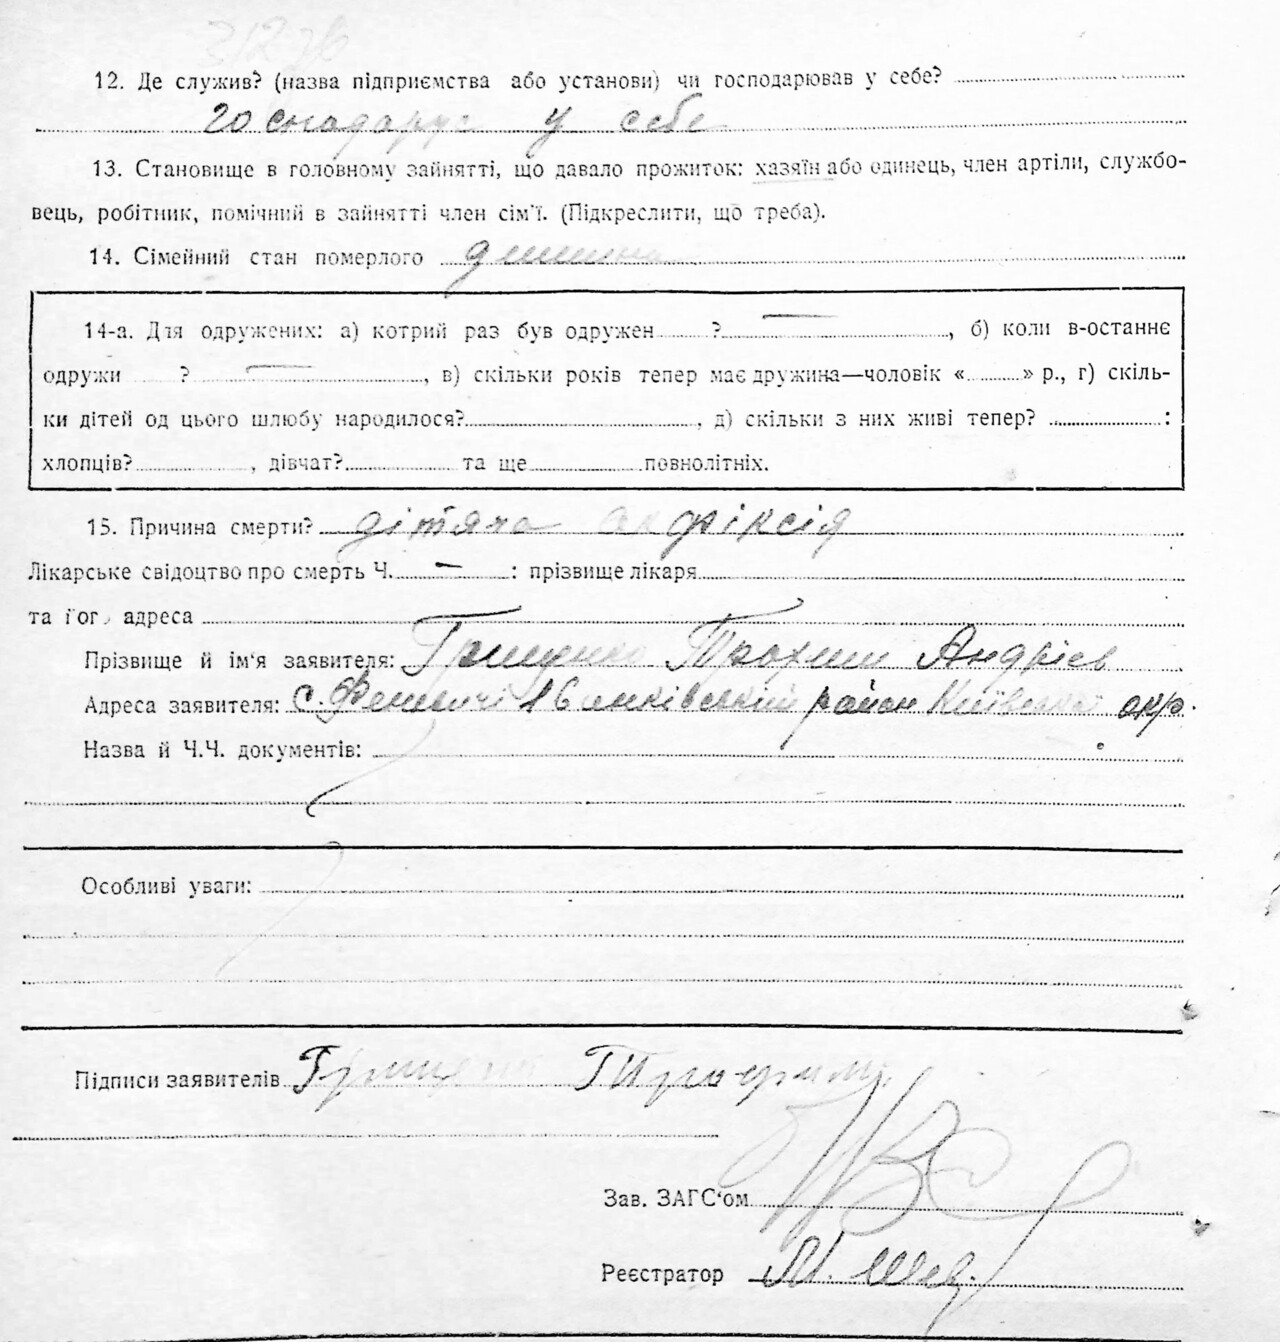 12. Де служив? (назва підприємства або установи) чи господарював у себе?
господарує у себе
13. Становище в головному зайнятті, що давало прожиток: хазяїн або одинець, член артіли, службо-
вець, робітник, помічний в зайнятті член сім'ї. (Підкреслити, що треба).
14. Сімейний стан померлого дитина
14-а. Для одружених: а) котрий раз був одружен ? —, б) коли в-останнє
одружи ? —, в) скільки років тепер має дружина—чоловік « » р., г) скіль-
ки дітей од цього шлюбу народилося? , д) скільки з них живі тепер? :
хлопців? , дівчат? та ще повнолітніх.
15. Причина смерти? дітяча асфіксія
Лікарське свідоцтво про смерть Ч. — : прізвище лікаря
та його адреса
Прізвище й ім'я заявителя: Грищенко Трохим Андрієв
Адреса заявителя: с. Феневичі Іванківський район Київської окр.
Назва й Ч.Ч. документів:
Особливі уваги:
Підписи заявителів Грищенко Трофим
Зав. ЗАГС'ом
Реєстратор М. Шев